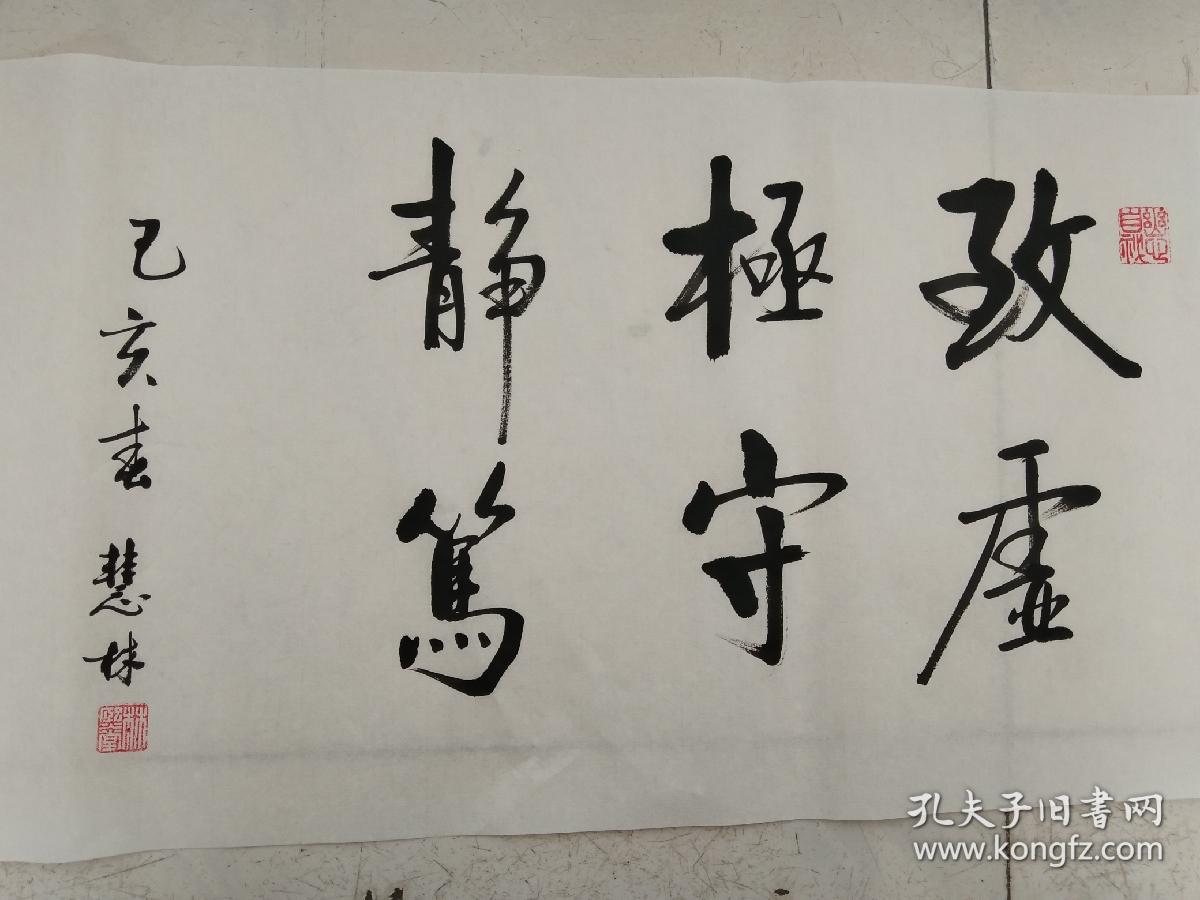 致虚
極守
静篤
己亥春 慧林
孔夫子旧书网
www.kongfz.com